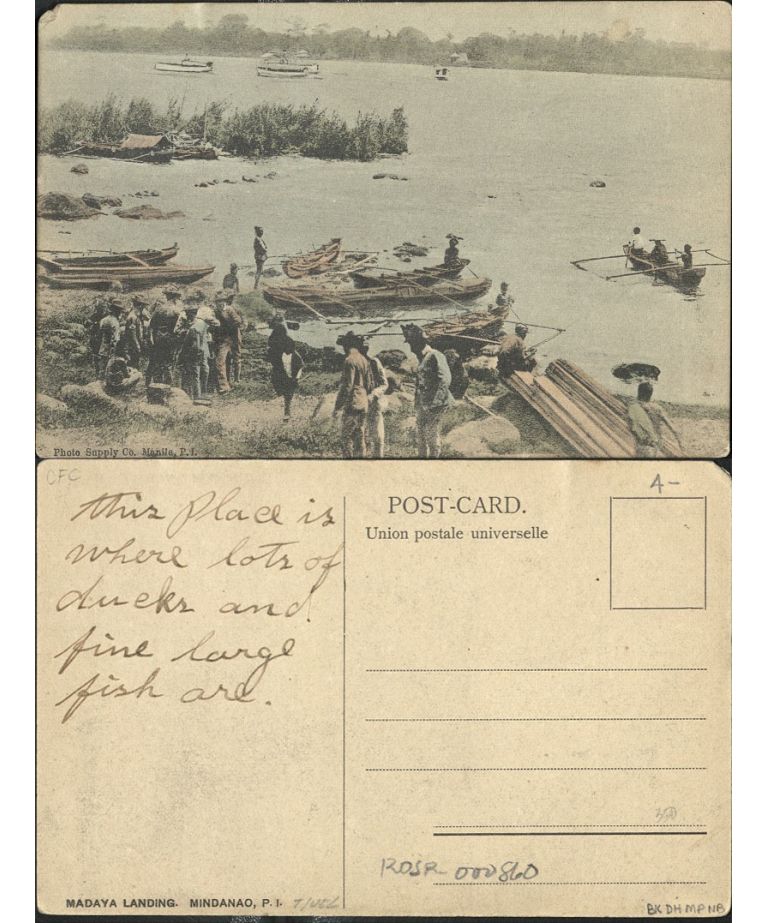 Photo Supply Co. Manila, P.I.
CFC
this place is
where lots of
ducks and
fine large
fish are.
POST-CARD.
Union postale universelle
A-
ROSR 000860
MADAYA LANDING. MINDANAO, P.I.
BK DH MP NB